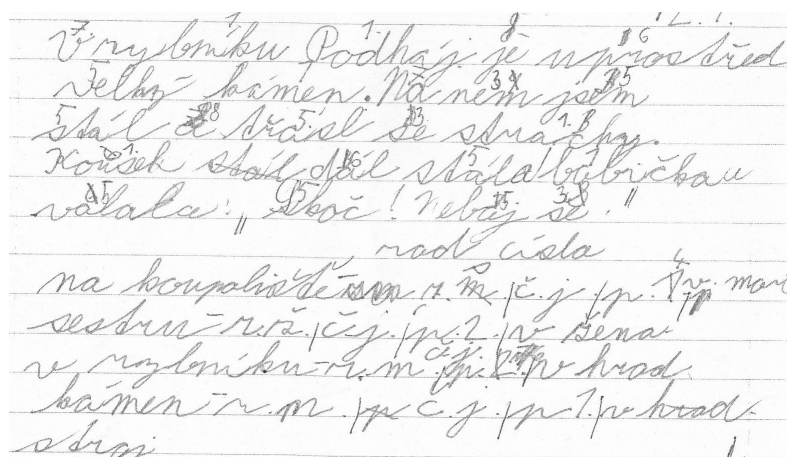 V rybníku Podháj je uprostřed
velký kámen. Na něm jsem
stál a třásl se strachy.
Kousek stál dál stála babička u
volala: „Skoč! Neboj se."
rod čísla
na koupališti - r. m., č. j., p. v. moř
sestru - r. ž., č. j., p. ?., v žena
v rybníku - r. m. č. j. p. v hrad
kámen - r. m., č. j., p 1., v hrad.
stroj